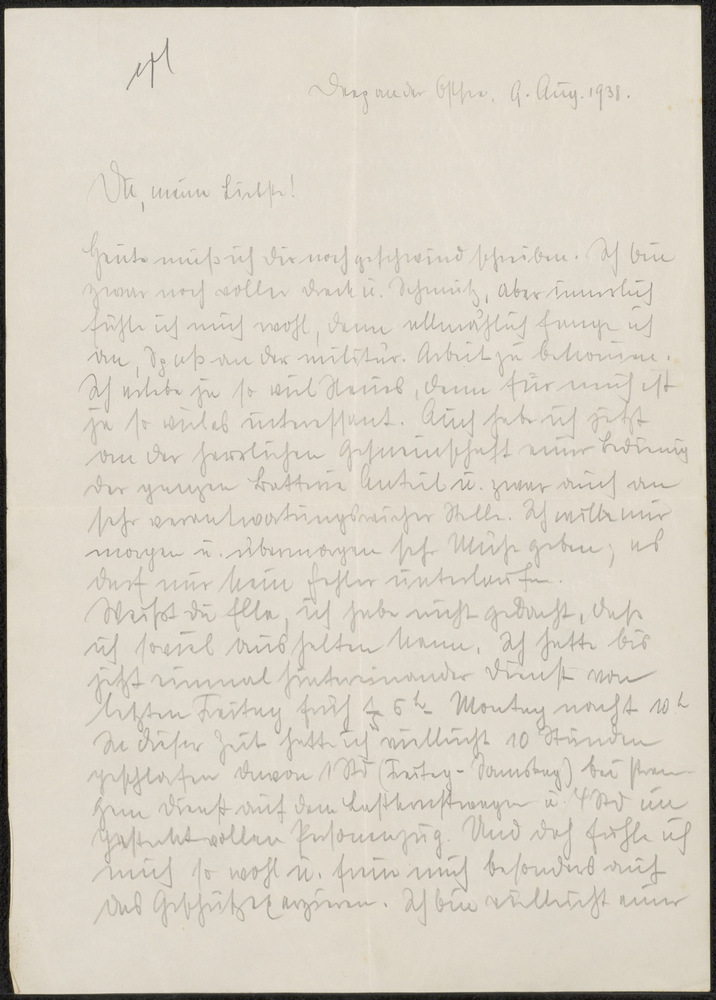 Deep an der Ostsee, 9. Aug. 1938.
Du, meine Liebste!
Heute muß ich dir noch geschwind schreiben. Ich bin
zwar noch voller Dreck u. Schmutz, aber innerlich
fühle ich mich wohl, denn allmählich fange ich
an, Spaß an der militär. Arbeit zu bekommen.
Ich erlebe ja so viel Neues, denn für mich ist
ja so vieles interessant. Auch habe ich jetzt
an der herrlichen Gemeinschaft einer Bedienung
der ganzen Batterie Anteil u. zwar auch an
sehr verantwortungsreicher Stelle. Ich will mir
morgen u. übermorgen sehr Mühe geben; es
darf nur kein Fehler unterlaufen.
Weißt du Ella, ich habe nicht gedacht, dass
ich soviel aushalten kann. Ich hatte bis
jetzt einmal hintereinander Dienst von
letzten Freitag früh 5 h - Montag nacht 10 h
In dieser Zeit hatte ich vielleicht 10 Stunden
geschlafen davon 1 Std (Freitag - Samstag) bei stren-
gem Dienst auf dem Lastkraftwagen u. 4 Std im
gesteckt vollen Personenzug. Und doch fühle ich
mich so wohl u. freue mich besonders auf
das Geschützexerzieren. Ich bin vielleicht einer